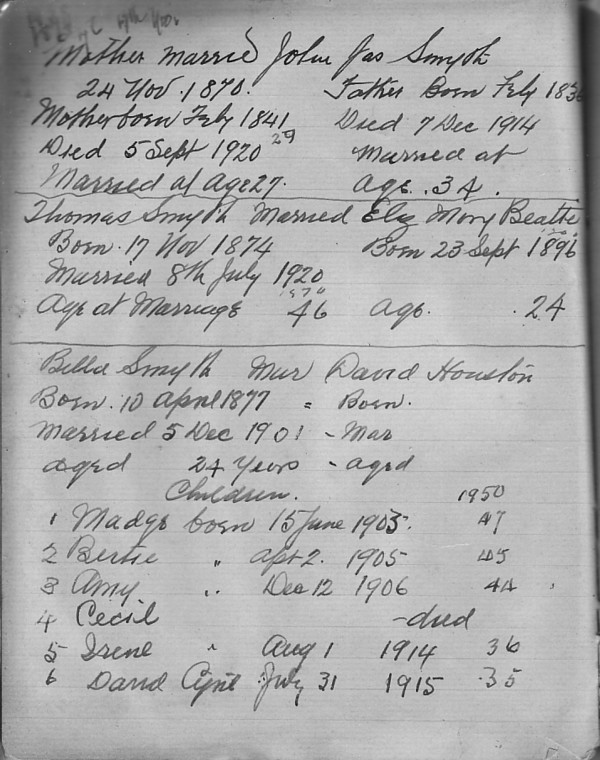 Mother Married John Jas Smyth
24 Nov. 1870. Father Born Feby 1836
Mother born Feby 1841 Died 7 Dec 1914
29
Died 5 Sept 1920 Married at
Married at Age 27. age. 34.
Thomas Smyth Married Eliz Mary Beattie
Born. 17 Nov 1874 Born 23 Sept 1896
Married 8th July 1920
Age at Marriage 46 age. 24
Bella Smyth Mar David Houston
Born. 10 April 1877 = Born.
Married 5 Dec 1901 - Mar
aged 24 Years - aged
Children. 1950
1 Madge born 15 June 1903. 47
2 Bertie " Apt 2. 1905 45
3 Amy " Dec 12 1906 44
4 Cecil - died
5 Irene " Aug 1 1914 36
6 David July 31 1915 35